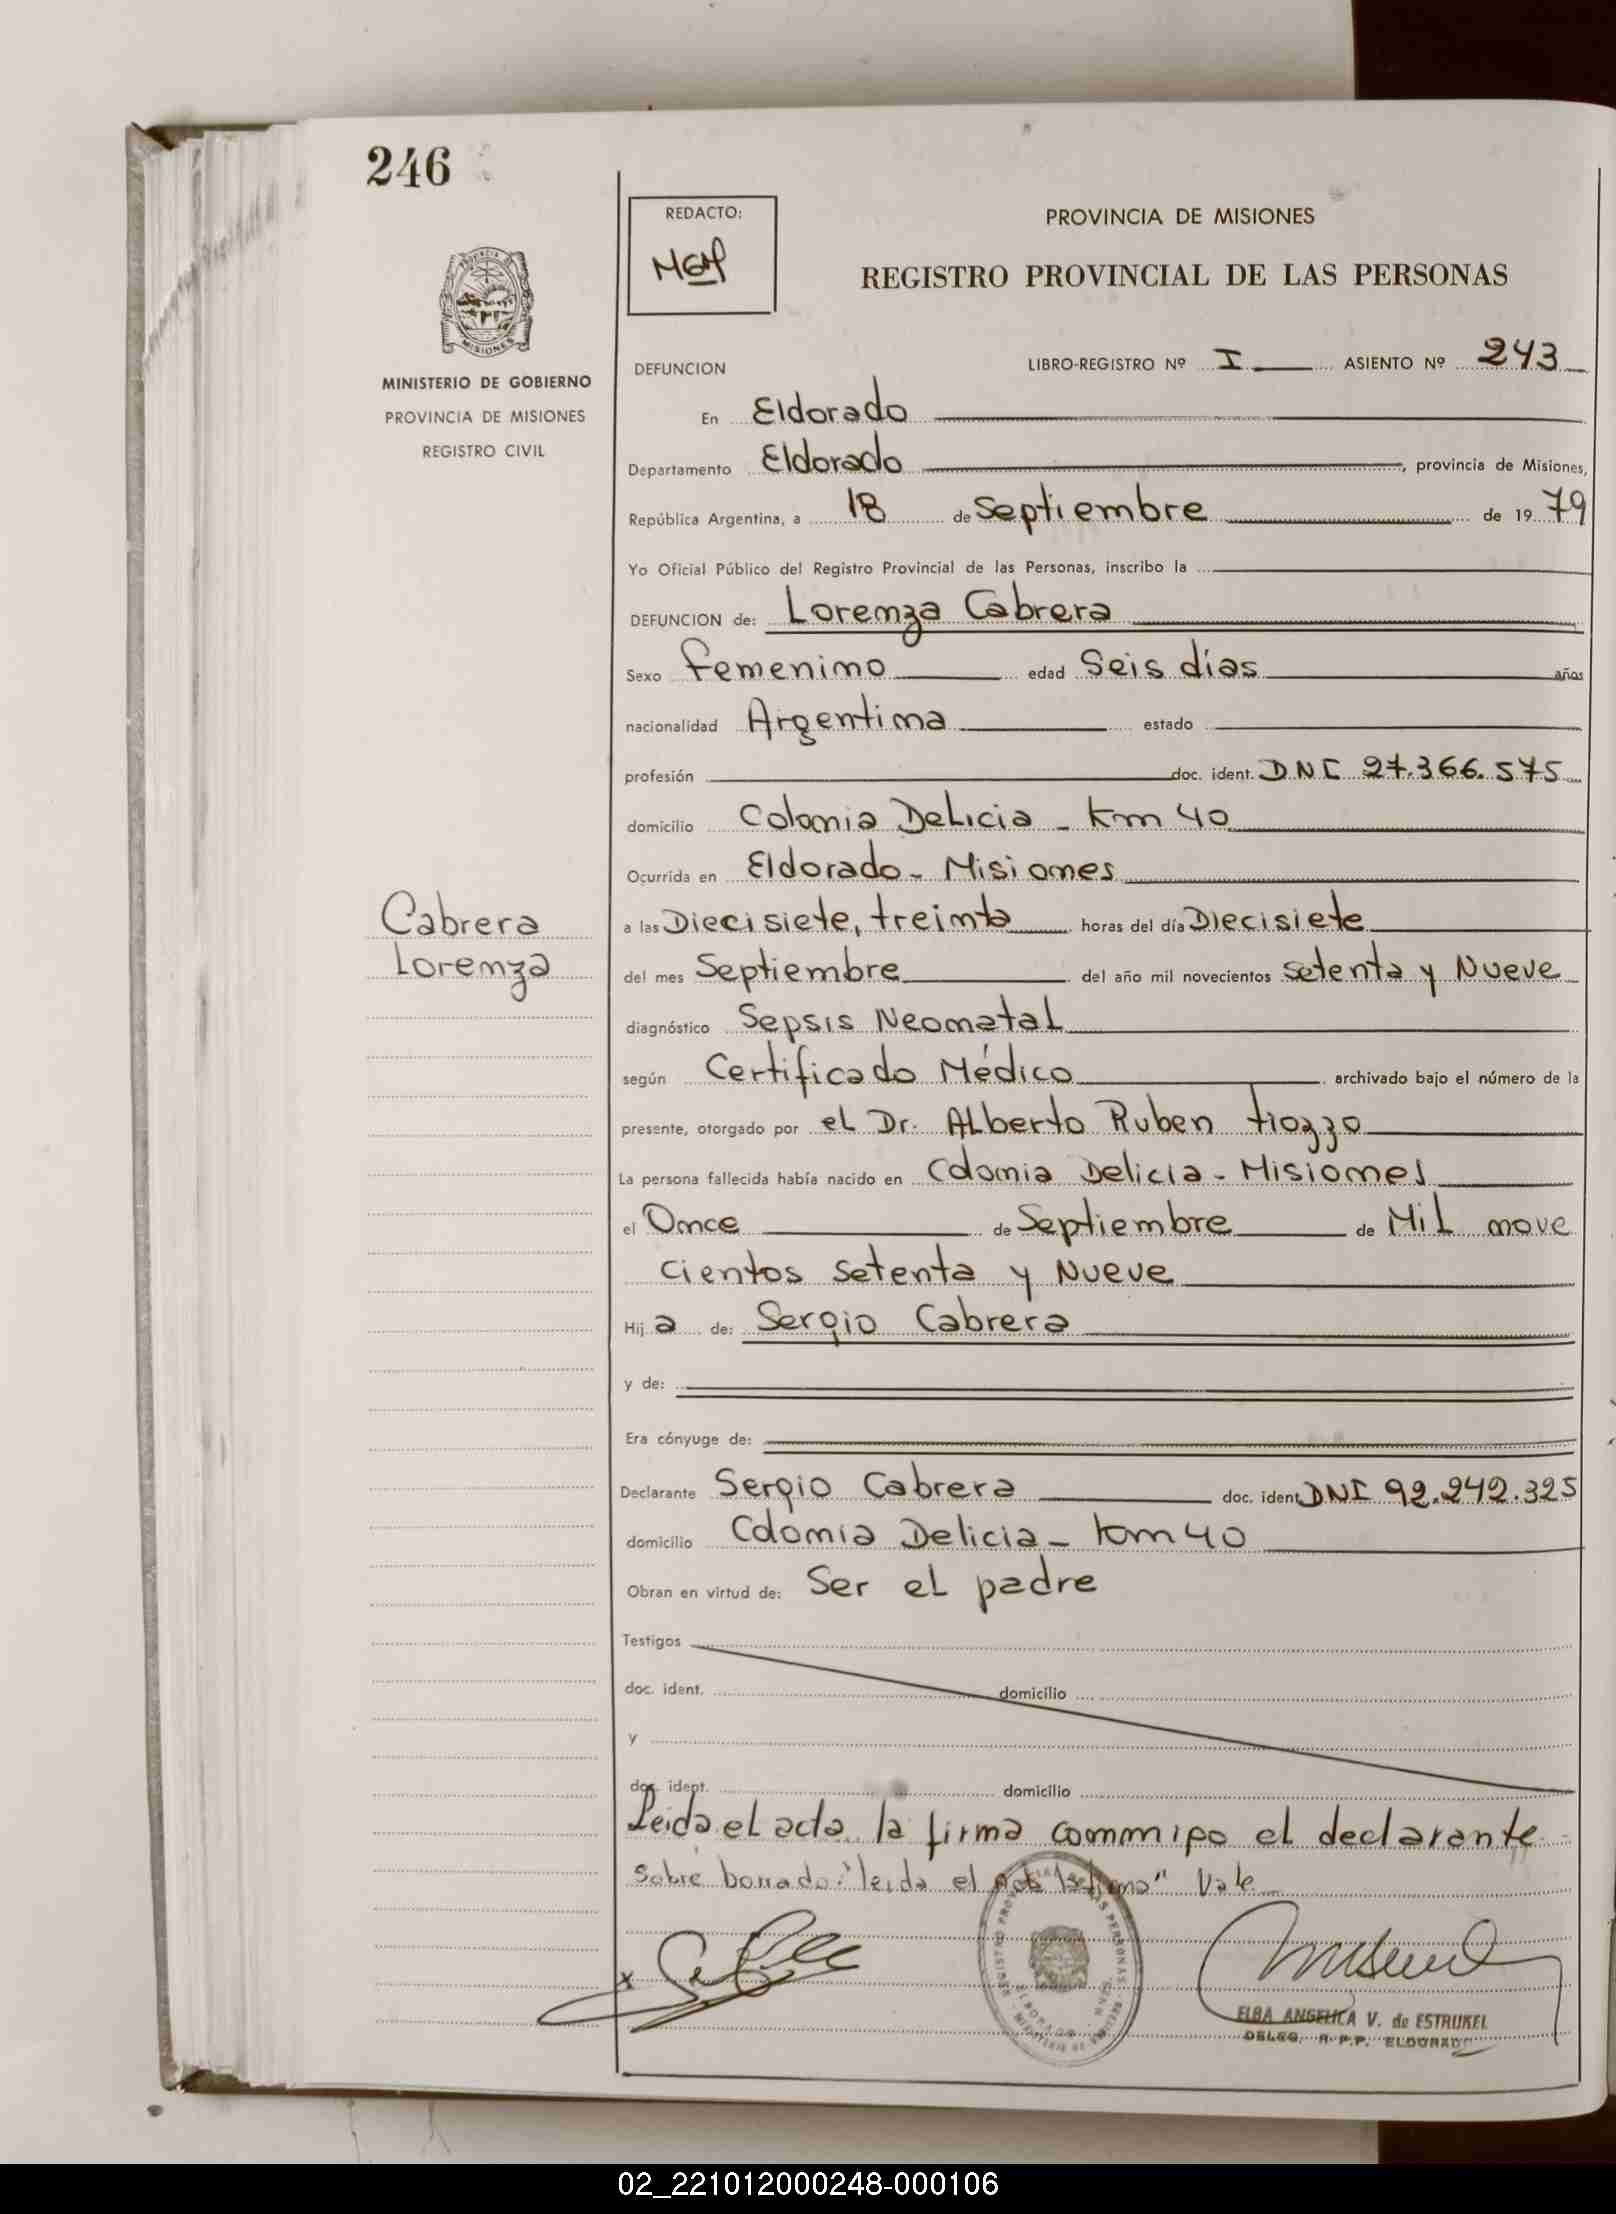 246
REDACTO:
MGM
PROVINCIA DE MISIONES
REGISTRO PROVINCIAL DE LAS PERSONAS
PROVINCIA
MISIONES
MINISTERIO DE GOBIERNO
PROVINCIA DE MISIONES
REGISTRO CIVIL
DEFUNCION LIBRO-REGISTRO Nº I ASIENTO Nº 243
En Eldorado
Departamento Eldorado, provincia de Misiones,
República Argentina, a 18 de Septiembre de 1979
Yo Oficial Público del Registro Provincial de las Personas, inscribo la
DEFUNCION de: Lorenza Cabrera
Sexo femenino edad Seis días años
nacionalidad Argentina estado
profesión doc. ident. DNI 27.366.575
domicilio Colonia Delicia - Km 40
Ocurrida en Eldorado - Misiones
Cabrera
Lorenza
a las Diecisiete, treinta horas del día Diecisiete
del mes Septiembre del año mil novecientos setenta y Nueve
diagnóstico Sepsis Neonatal
según Certificado Médico archivado bajo el número de la
presente, otorgado por el Dr. Alberto Ruben Fiozzo
La persona fallecida había nacido en Colonia Delicia - Misiones
el Once de Septiembre de Mil nove
cientos setenta y Nueve
Hija de: Sergio Cabrera
y de:
Era cónyuge de:
Declarante Sergio Cabrera doc. ident DNI 92.242.325
domicilio Colonia Delicia - km 40
Obran en virtud de: Ser el padre
Testigos
doc. ident. domicilio
y
doc. ident. domicilio
Leida el acta la firma conmigo el declarante
Sobre borrado: "leida el acta la firma" Vale
x
REGISTRO PROVINCIAL DE LAS PERSONAS
ELDORADO
ELBA ANGELICA V. de ESTRUKEL
DELEG. R.P.P. ELDORADO
02_221012000248-000106